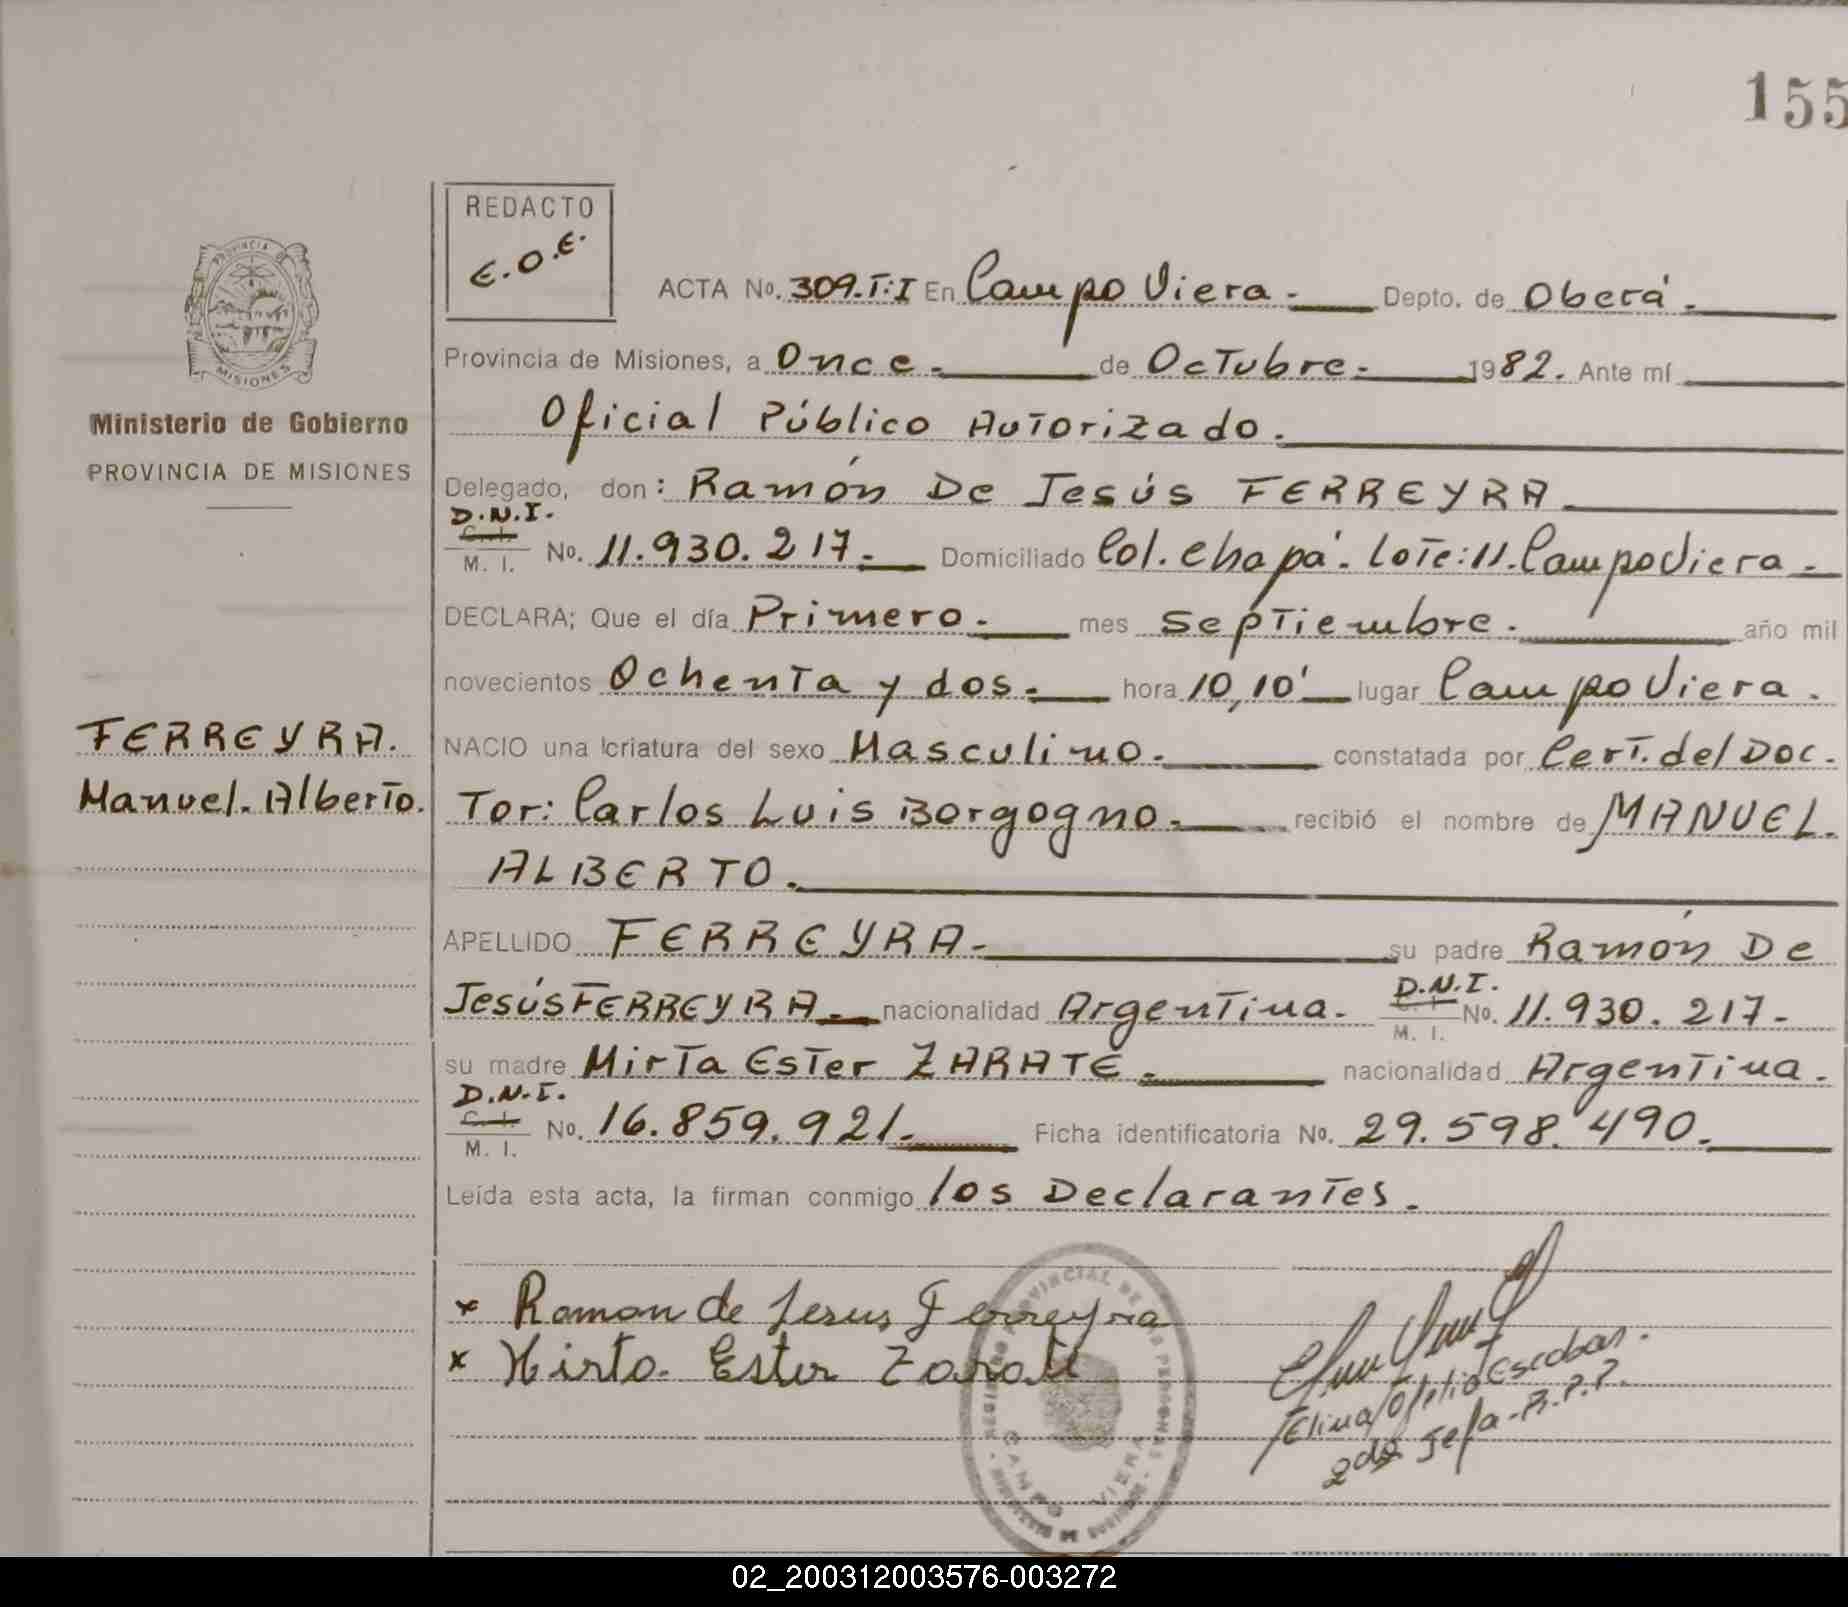 155
REDACTO
E.O.E.
PROVINCIA DE
MISIONES
Ministerio de Gobierno
PROVINCIA DE MISIONES
FERREYRA.
Manuel. Alberto.
ACTA No. 309.T:I En Campo Viera.- Depto. de Oberá.
Provincia de Misiones, a Once. de Octubre. 1982. Ante mí
Oficial Público Autorizado.
Delegado, don: Ramón De Jesús FERREYRA
D.N.I.
C. I.
M. I. No. 11.930.217. Domiciliado Col. Chapá. Lote:11. Campo Viera.
DECLARA; Que el día Primero. mes septiembre. año mil
novecientos Ochenta y dos. hora 10,10' lugar Campo Viera.
NACIO una criatura del sexo Masculino. constatada por Cert. del Doc.
Tor: Carlos Luis Borgogno. recibió el nombre de MANUEL.
ALBERTO.
APELLIDO FERREYRA. su padre Ramón De
Jesús FERREYRA. nacionalidad Argentina. D.N.I. C. I. M. I. No. 11.930.217-
su madre Mirta Ester ZARATE. nacionalidad Argentina.
D.N.I.
C. I.
M. I. No. 16.859.921. Ficha identificatoria No. 29.598.490.
Leída esta acta, la firman conmigo los Declarantes.
x Ramon de Jesus Ferreyra
x Mirta. Ester Zarate
Elina Ofelia Escobar.
2da Jefa-R.P.P.
REGISTRO PROVINCIAL DE LAS PERSONAS - MISIONES
CAMPO VIERA
02_200312003576-003272